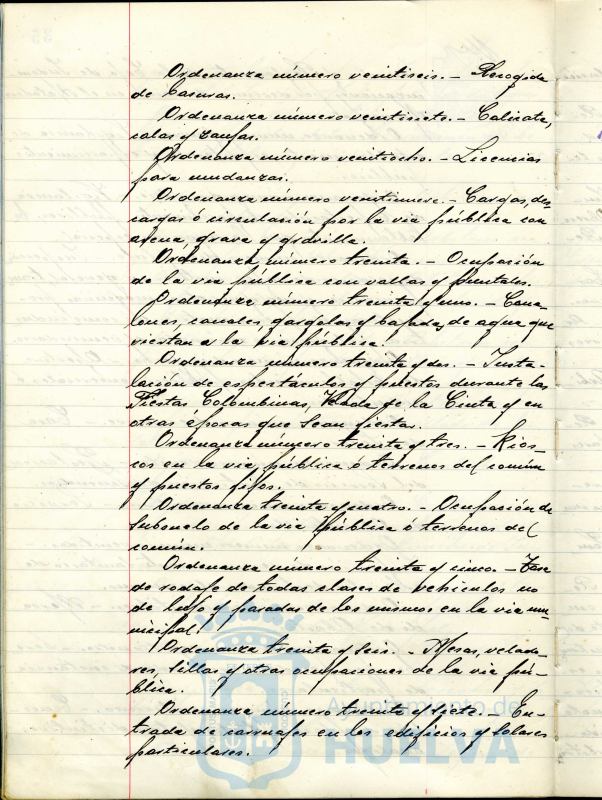 Ordenanza número veintiseis. - Recogida
de basuras.
Ordenanza número veintisiete. - Calicata,
calas y zanjas.
Ordenanza número veintiocho. - Licencias
para mudanzas.
Ordenanza número veintinueve. - Cargas, des
cargar ó circulación por la via pública con
arena, grava y gravilla.
Ordenanza número treinta. - Ocupación
de la via pública con vallas y puntales.
Ordenanza número treinta y uno. - Cana-
lones, canales, gargolas y bajadas de agua que
viertan a la via pública.
Ordenanza número treinta y dos. - Insta-
lación de espectáculos y puestos durante las
Fiestas Colombinas, Velada de la Cinta y en
otras épocas que sean fiestas.
Ordenanza número treinta y tres. - Kios-
cos en la via pública ó terrenos del común
y puestos fijos.
Ordenanza treinta y cuatro. - Ocupación de
subsuelo de la via pública ó terrenos del
común.
Ordenanza número treinta y cinco. - Tasa
de rodaje de todas clases de vehículos no
de lujo y paradas de los mismos en la via mu-
nicipal.
Ordenanza treinta y seis. - Mesas, velado-
res, sillas y otras ocupaciones de la via pú-
blica.
Ordenanza número treinta y siete. - En-
trada de carruajes en los edificios y solares
particulares.
Ayuntamiento de
HUELVA